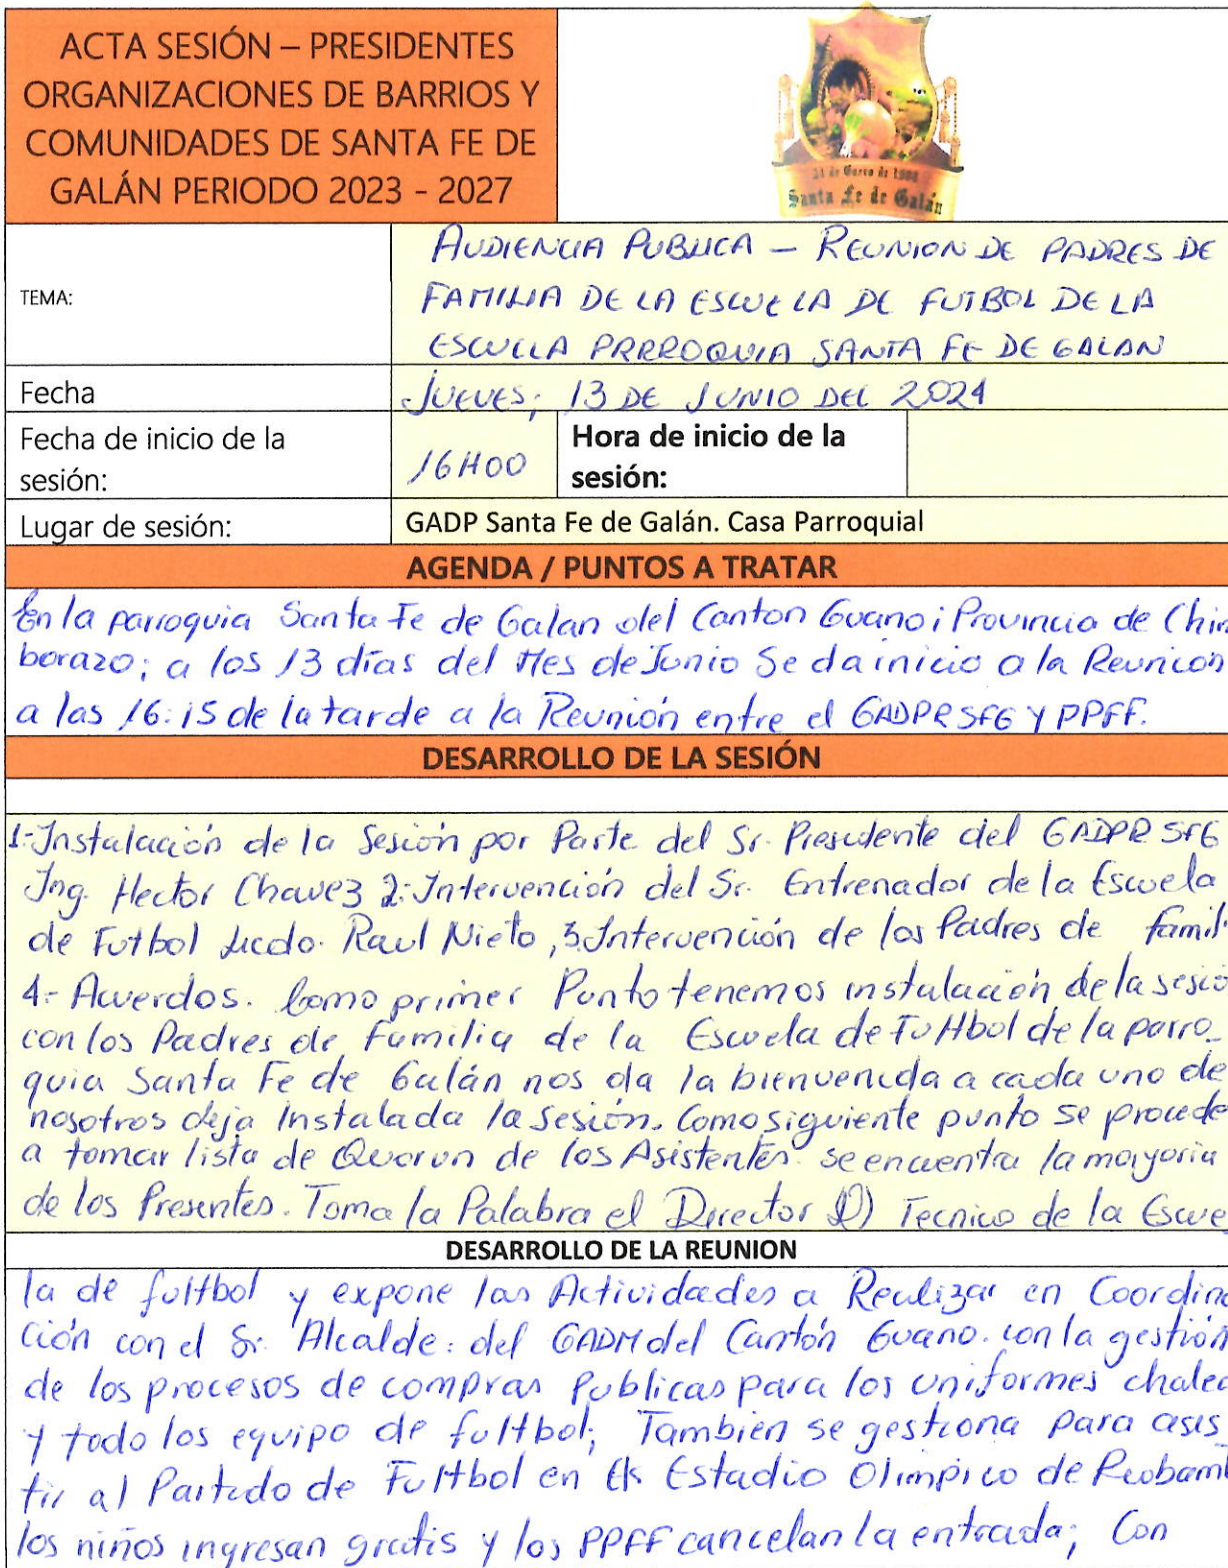 ACTA SESIÓN – PRESIDENTES
ORGANIZACIONES DE BARRIOS Y
COMUNIDADES DE SANTA FE DE
GALÁN PERIODO 2023 - 2027
Santa Fe de Galán
TEMA:
AUDIENCIA PUBLICA – REUNION DE PADRES DE
FAMILIA DE LA ESCUELA DE FUTBOL DE LA
ESCUELA PARROQUIA SANTA FE DE GALAN
Fecha
JUEVES; 13 DE JUNIO DEL 2024
Fecha de inicio de la
sesión:
16H00
Hora de inicio de la
sesión:
Lugar de sesión:
GADP Santa Fe de Galán. Casa Parroquial
AGENDA / PUNTOS A TRATAR
En la parroquia Santa Fe de Galan del Canton Guano; Provincia de Chim
borazo; a los 13 días del Mes de Junio Se da inicio a la Reunion
a las 16:15 de la tarde a la Reunión entre el GADPRSFG y PPFF.
DESARROLLO DE LA SESIÓN
1.-Instalación de la Sesión por Parte del Sr. Presidente del GADPR SFG
Ing. Hector Chavez 2.-Intervención del Sr. Entrenador de la Escuela
de Futbol Licdo. Raul Nieto, 3.Intervención de los Padres de famil
4.- Acuerdos. Como primer Punto tenemos instalación de la sesió
con los Padres de Familia de la Escuela de Futtbol de la parro_
quia Santa Fe de Galán nos da la bienvenida a cada uno de
nosotros deja Instalada la Sesión. Como siguiente punto se procede
a tomar lista de Quorun de los Asistentes. se encuentra la mayoria
de los Presentes. Toma la Palabra el Director D) Tecnico de la Escue
DESARROLLO DE LA REUNION
la de futtbol y expone las Actividades a Realizar en Coordina
ción con el Sr. Alcalde: del GADM del Cantón Guano. con la gestión
de los procesos de compras Publicas para los uniformes chalec
y todo los equipo de futtbol; Tambien se gestiona para asis_
tir al Partido de Futtbol en Estadio Olimpico de Riobamb
los niños ingresan gratis y los PPFF cancelan la entrada; Con